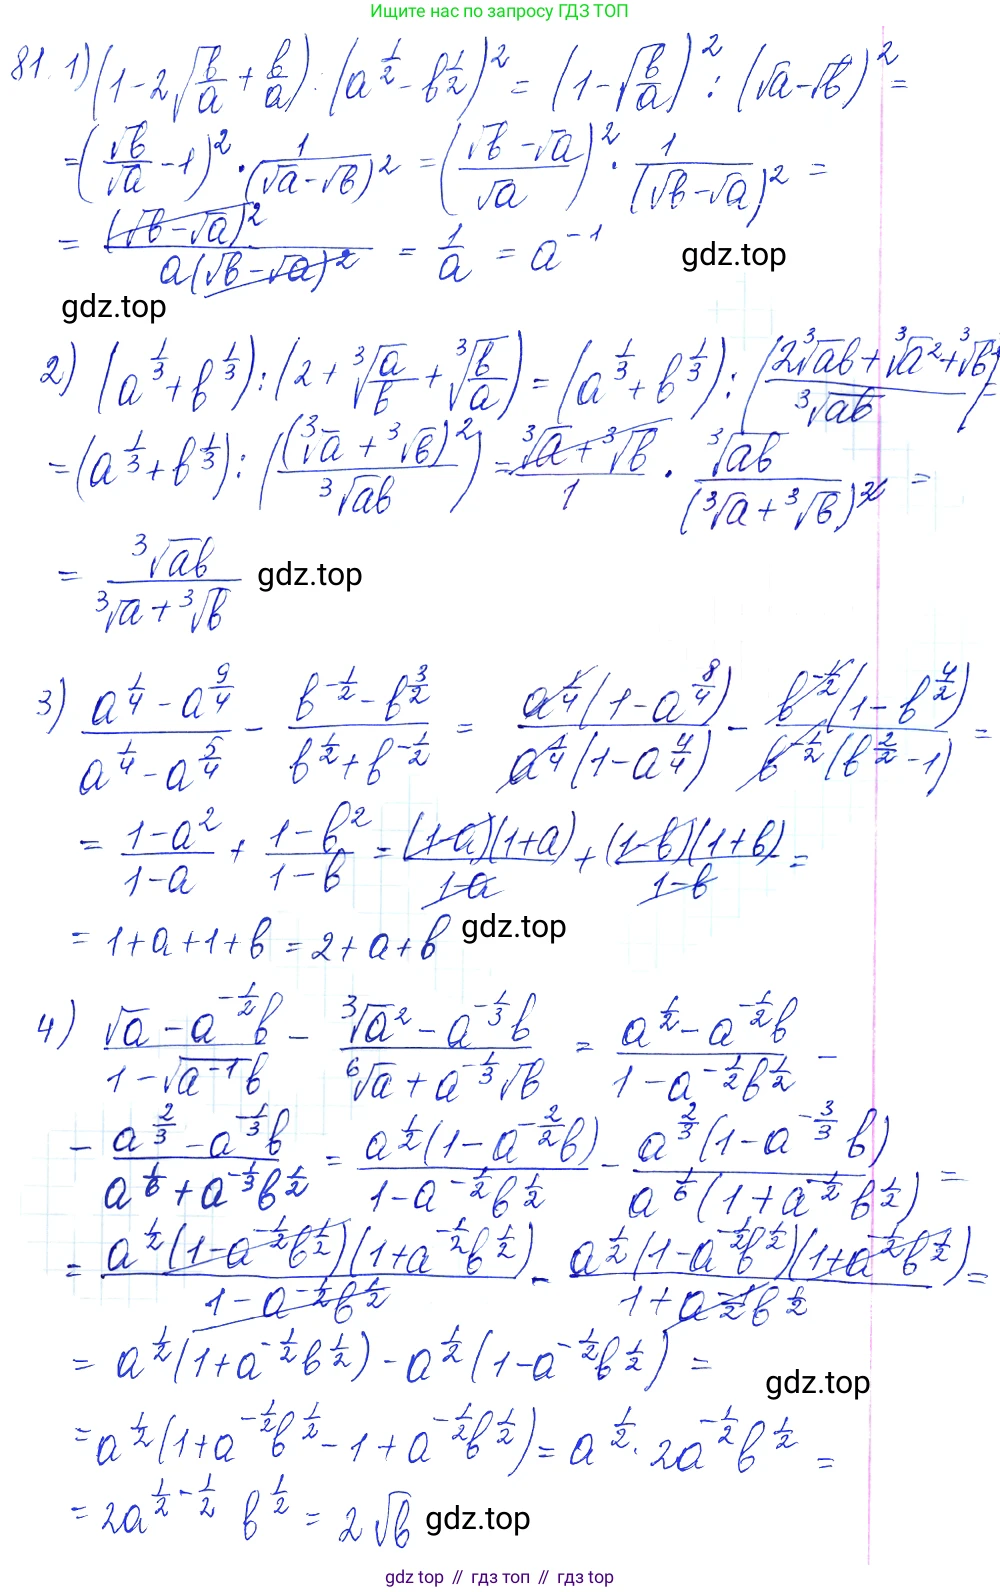 Ищите нас по запросу ГДЗ ТОП
81. 1) (1 - 2√(b/a) + b/a) : (a^(1/2) - b^(1/2))^2 = (1 - √(b/a))^2 : (√a - √b)^2 =
= (√b/√a - 1)^2 · 1/(√a - √b)^2 = ((√b - √a)/√a)^2 · 1/(√b - √a)^2 =
= (√b - √a)^2/(a(√b - √a)^2) = 1/a = a^(-1)
gdz.top
gdz.top
2) (a^(1/3) + b^(1/3)) : (2 + ∛(a/b) + ∛(b/a)) = (a^(1/3) + b^(1/3)) : ((2∛ab + ∛a^2 + ∛b^2)/∛ab) =
= (a^(1/3) + b^(1/3)) : ((∛a + ∛b)^2/∛ab) = (∛a + ∛b)/1 · ∛ab/(∛a + ∛b)^2 =
= ∛ab/(∛a + ∛b)
gdz.top
3) (a^(1/4) - a^(9/4))/(a^(1/4) - a^(5/4)) - (b^(-1/2) - b^(3/2))/(b^(1/2) + b^(-1/2)) = a^(1/4)(1 - a^(8/4))/(a^(1/4)(1 - a^(4/4))) - b^(-1/2)(1 - b^(4/2))/(b^(-1/2)(b^(2/2) - 1)) =
= (1 - a^2)/(1 - a) + (1 - b^2)/(1 - b) = (1 - a)(1 + a)/(1 - a) + (1 - b)(1 + b)/(1 - b) =
= 1 + a + 1 + b = 2 + a + b
gdz.top
4) (√a - a^(-1/2)b)/(1 - √(a^(-1)b)) - (∛a^2 - a^(-1/3)b)/(⁶√a + a^(-1/3)√b) = (a^(1/2) - a^(-1/2)b)/(1 - a^(-1/2)b^(1/2)) -
- (a^(2/3) - a^(-1/3)b)/(a^(1/6) + a^(-1/3)b^(1/2)) = a^(1/2)(1 - a^(-2/2)b)/(1 - a^(-1/2)b^(1/2)) - a^(2/3)(1 - a^(-3/3)b)/(a^(1/6)(1 + a^(-1/2)b^(1/2))) =
= a^(1/2)(1 - a^(-1/2)b^(1/2))(1 + a^(-1/2)b^(1/2))/(1 - a^(-1/2)b^(1/2)) - a^(1/2)(1 - a^(-1/2)b^(1/2))(1 + a^(-1/2)b^(1/2))/(1 + a^(-1/2)b^(1/2)) =
= a^(1/2)(1 + a^(-1/2)b^(1/2)) - a^(1/2)(1 - a^(-1/2)b^(1/2)) =
gdz.top
= a^(1/2)(1 + a^(-1/2)b^(1/2) - 1 + a^(-1/2)b^(1/2)) = a^(1/2) · 2a^(-1/2)b^(1/2) =
= 2a^(1/2 - 1/2) b^(1/2) = 2√b
gdz.top
gdz.top // gdz.top // gdz.top